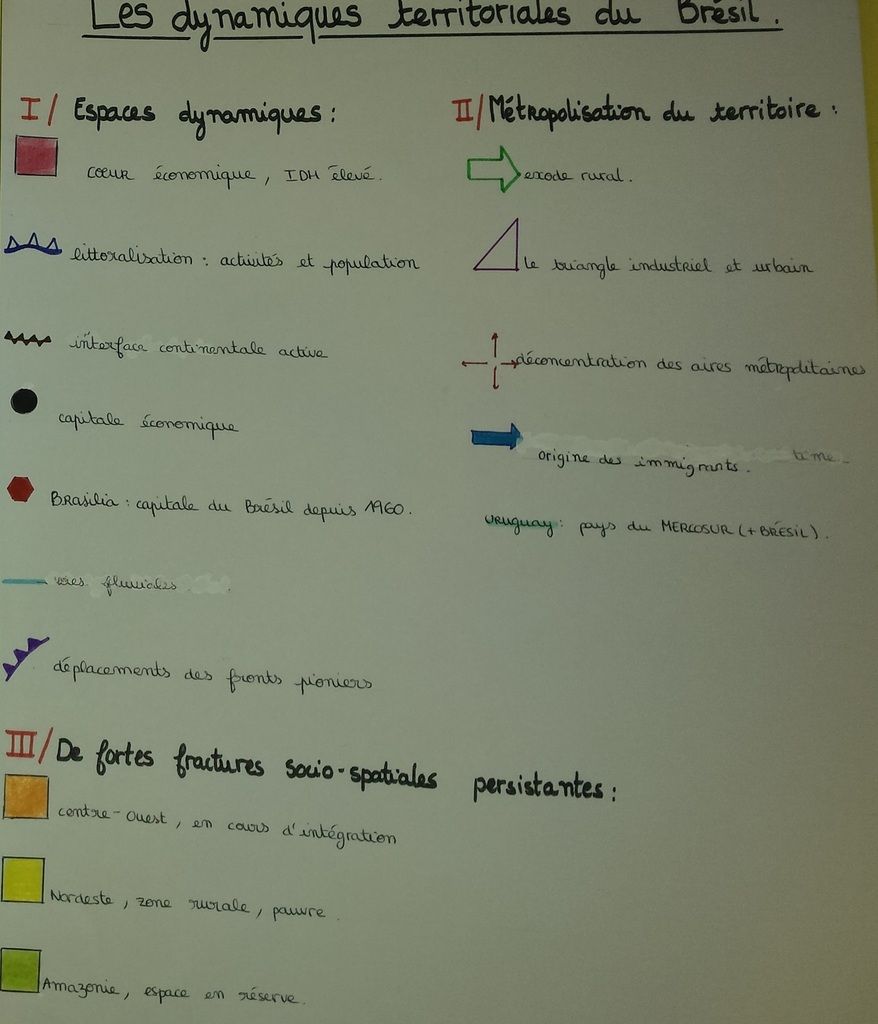 Les dynamiques territoriales du Brésil.
I/ Espaces dynamiques :
coeur économique, IDH élevé.
littoralisation : activités et population
interface continentale active
capitale économique
Brasilia : capitale du Brésil depuis 1960.
voies fluviales
déplacements des fronts pioniers
II/ Métropolisation du territoire :
exode rural.
le triangle industriel et urbain
déconcentration des aires métropolitaines
origine des immigrants.
uruguay : pays du MERCOSUR (+ BRÉSIL).
III/ De fortes fractures socio-spatiales persistantes :
contre-ouest, en cours d'intégration
Nordeste, zone rurale, pauvre.
Amazonie, espace en réserve.